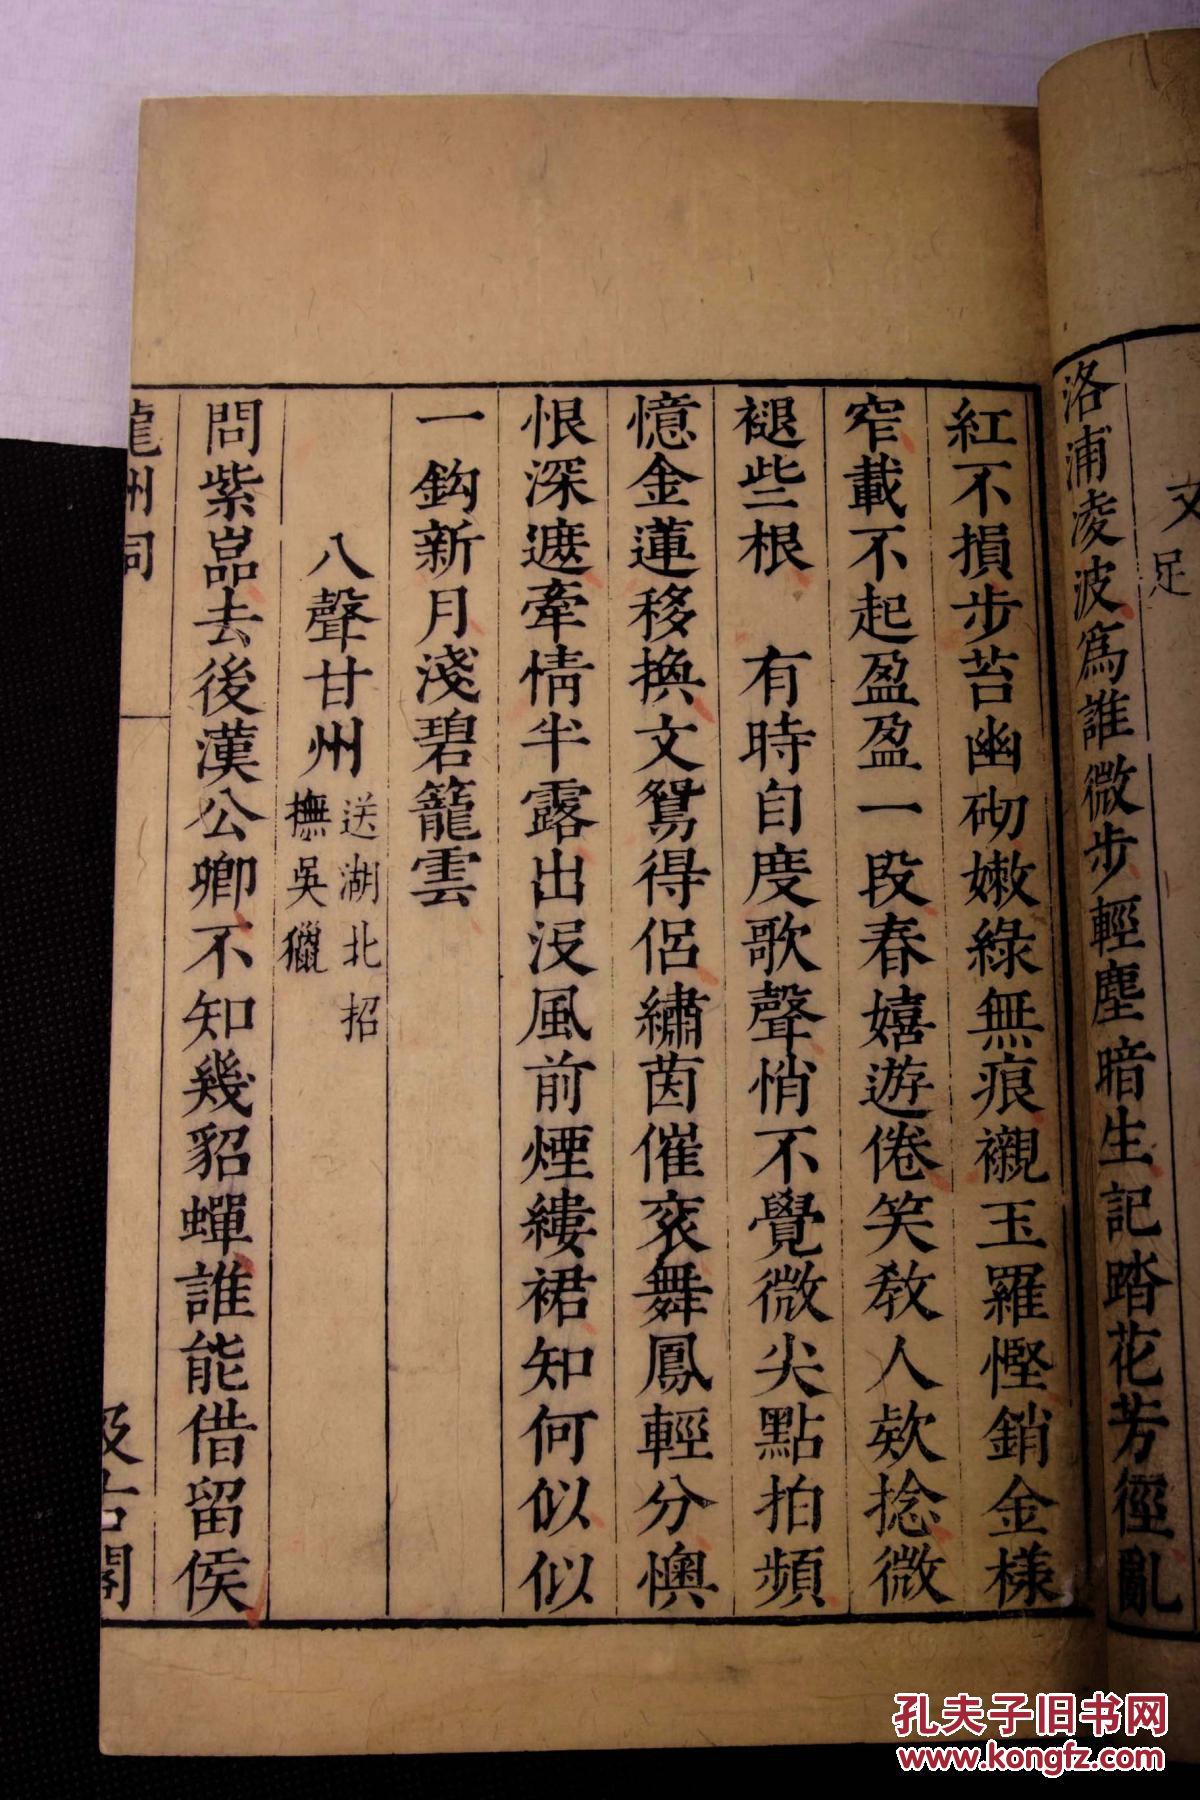 又
足
洛浦凌波爲誰微步輕塵暗生記踏花芳徑亂
紅不損步苔幽砌嫩綠無痕襯玉羅慳銷金樣
窄載不起盈盈一段春嬉遊倦笑教人欵捻微
褪些根　有時自度歌聲悄不覺微尖點拍頻
憶金蓮移換文鴛得侶繡茵催衮舞鳳輕分懊
恨深遮牽情半露出沒風前煙縷裙知何似似
一鈎新月淺碧籠雲
八聲甘州
送湖北招
撫吳獵
問紫嵓去後漢公卿不知幾貂蟬誰能借留侯
龍州詞
汲古閣
孔夫子旧书网
www.kongfz.com